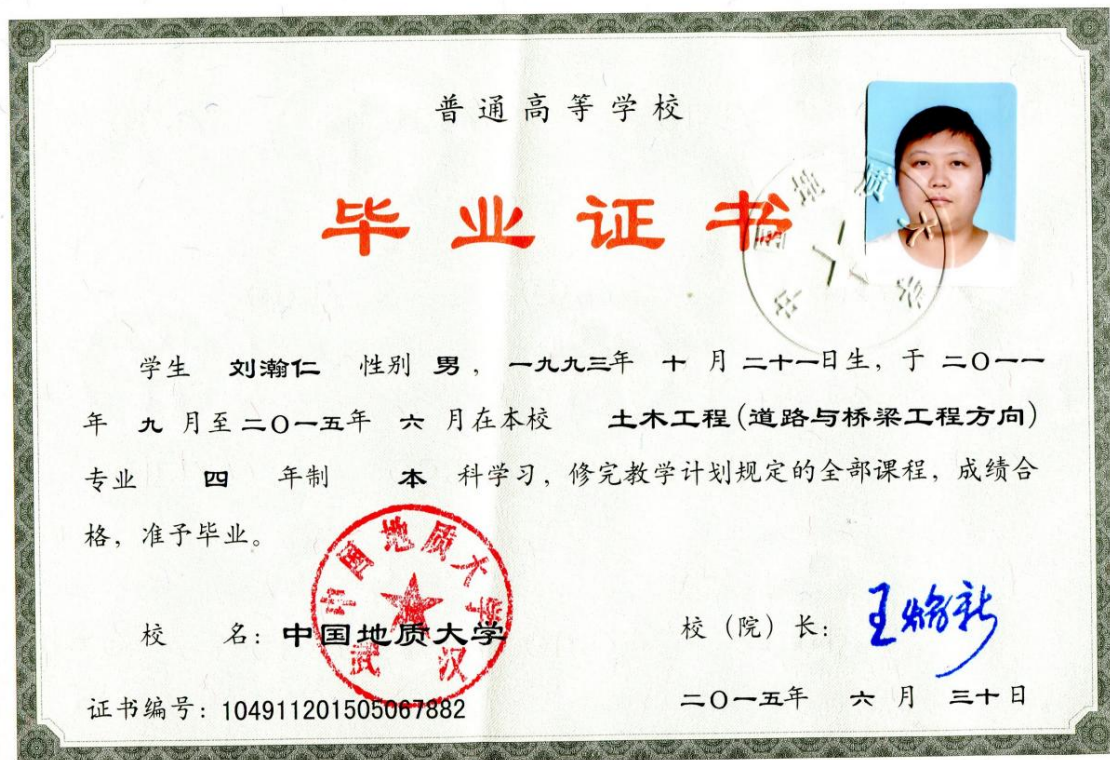 普通高等学校
毕业证书
学生 刘瀚仁 性别 男，一九九三年 十 月 二十一日生，于 二〇一一
年 九 月至 二〇一五年 六 月在本校 土木工程(道路与桥梁工程方向)
专业 四 年制 本 科学习，修完教学计划规定的全部课程，成绩合
格，准予毕业。
校 名：中国地质大学
中国地质大学
武汉
校（院）长：
证书编号：104911201505067882
二〇一五年 六 月 三十日